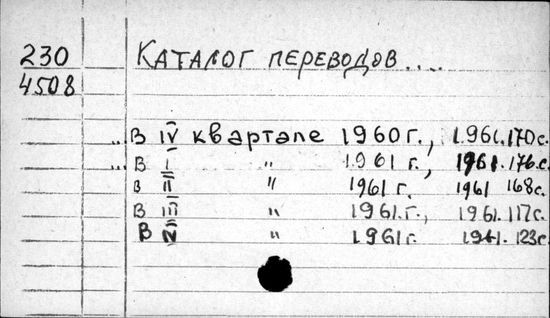 230
4508
Каталог переводов....
..В IV квартале 1960 г., 1961. 170 с.
...В I " 1961 г., 1961. 176 с.
В II " 1961 г. 1961 168 с.
В III " 1961 г., 1961. 117 с.
В IV " 1961 г. 1961. 123 с.